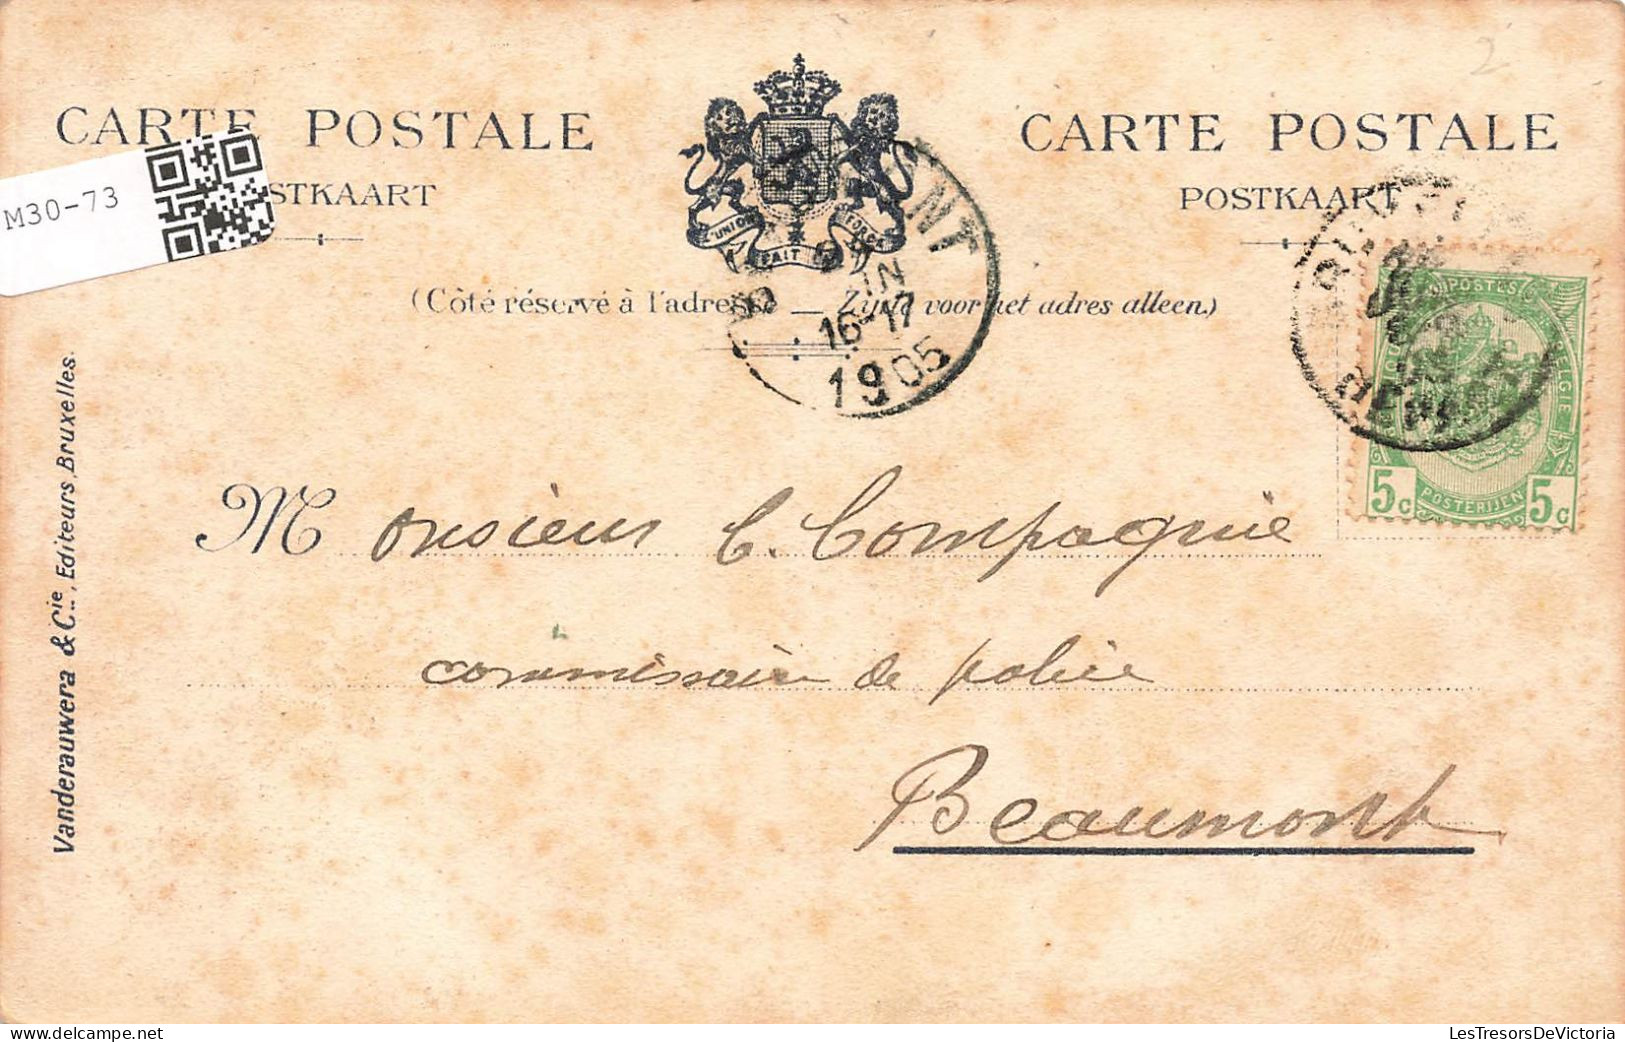 CARTE POSTALE
STKAART
M30-73
CARTE POSTALE
POSTKAART
L'UNION FAIT LA FORCE
(Côté réservé à l'adresse) — Zijde voor het adres alleen.)
16-17
1905
POSTES
BELGIE
5c 5c
POSTERIJEN
Vanderauwera & Cie, Editeurs, Bruxelles.
Monsieur C. Compagnie
commissaire de police
Beaumont
LesTresorsDeVictoria